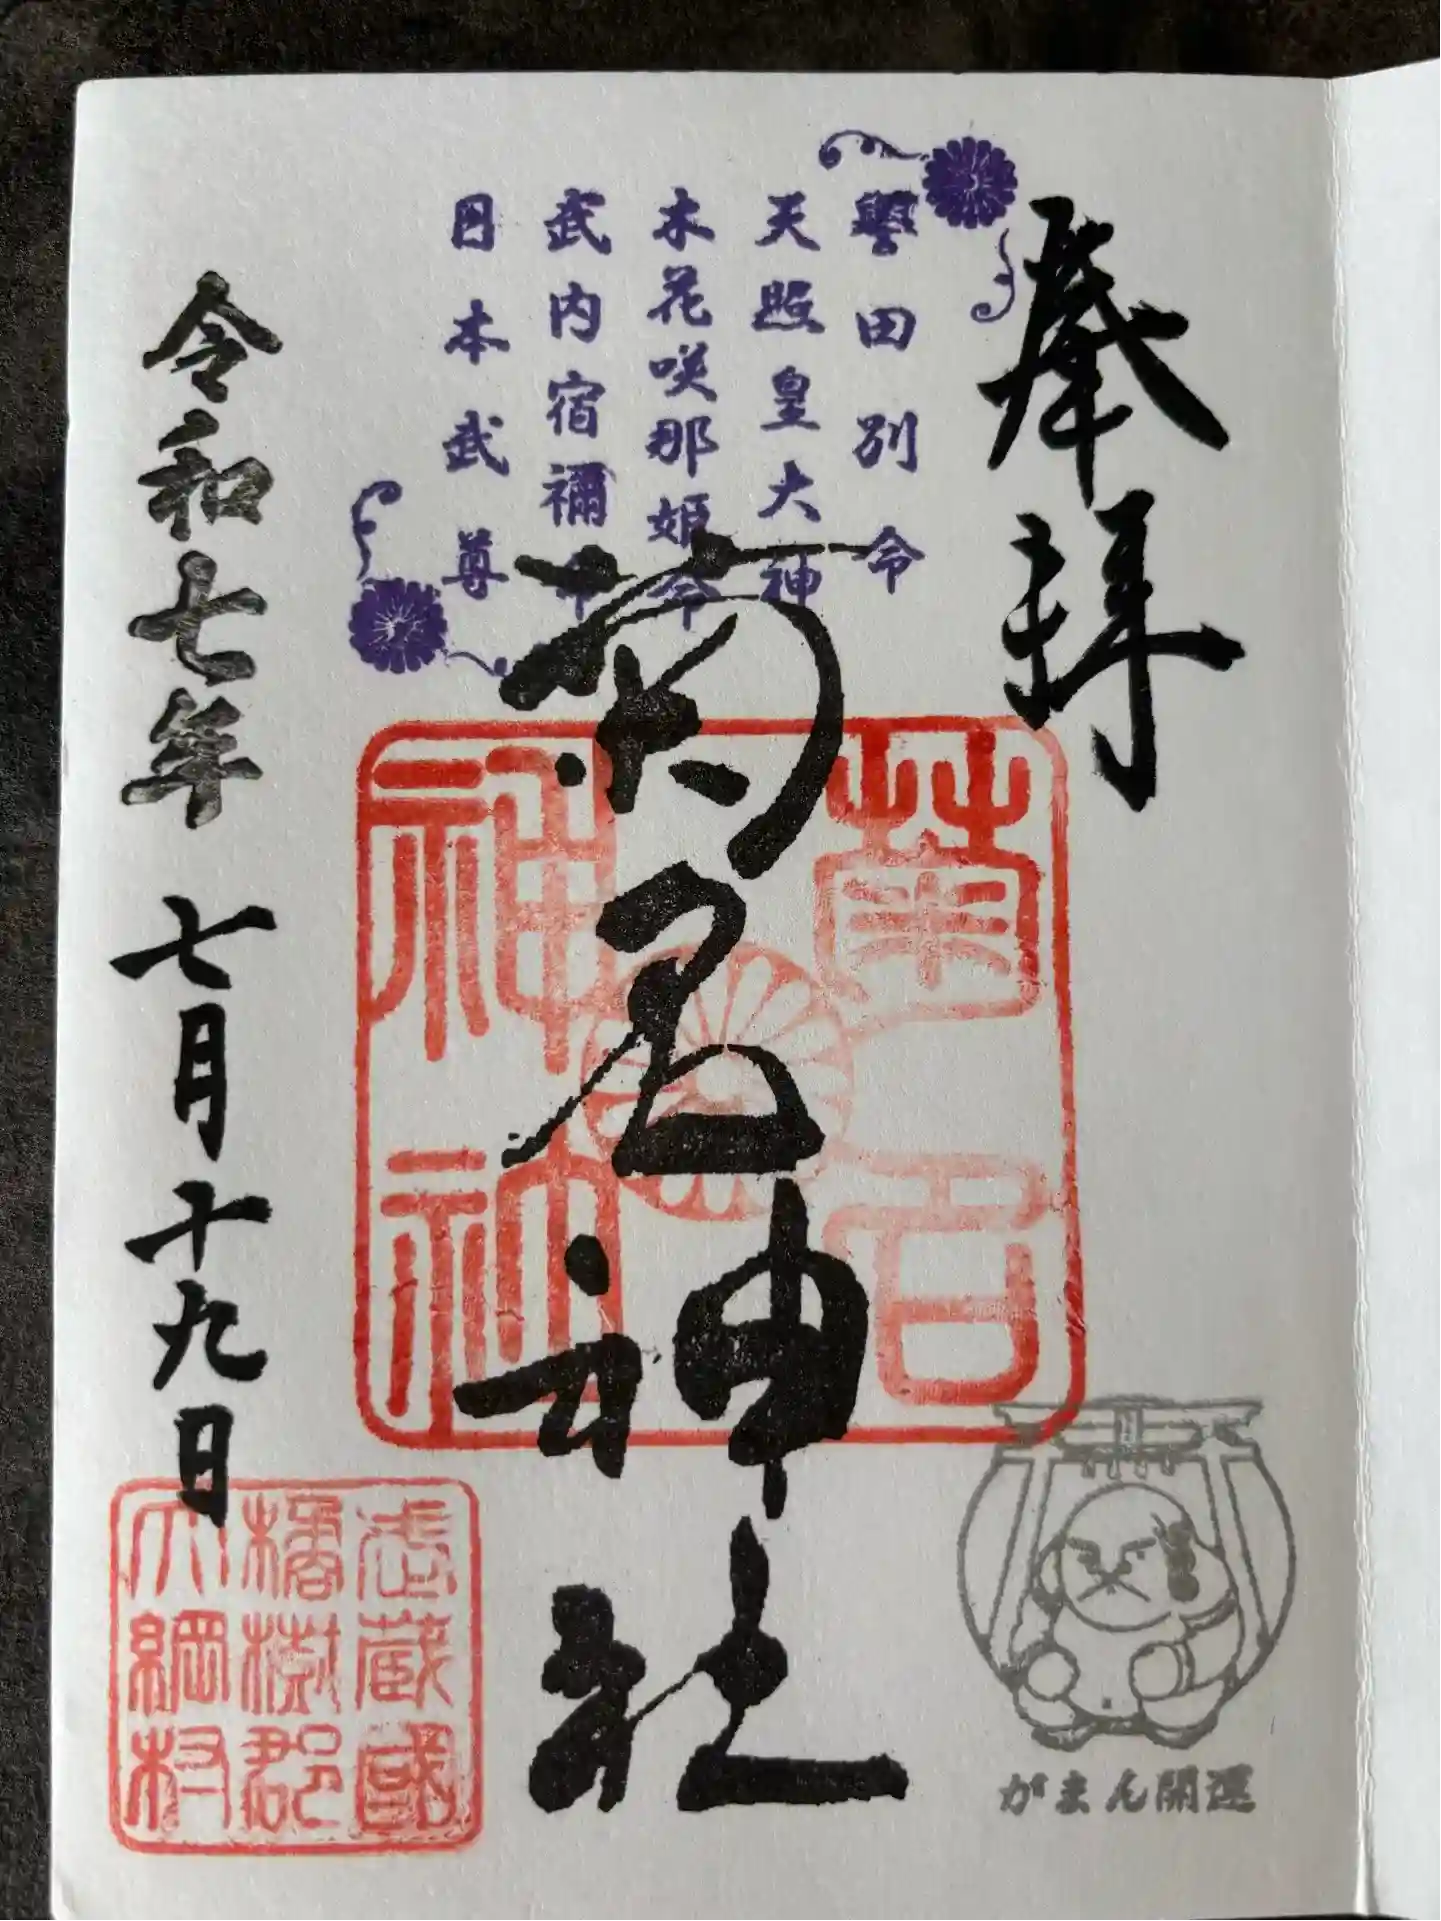 奉拝
誉田別命
天照皇大神
木花咲那姫命
武内宿禰命
日本武尊
菊名神社
菊名神社
令和七年 七月十九日
武蔵國
橘樹郡
大綱村
がまん開運